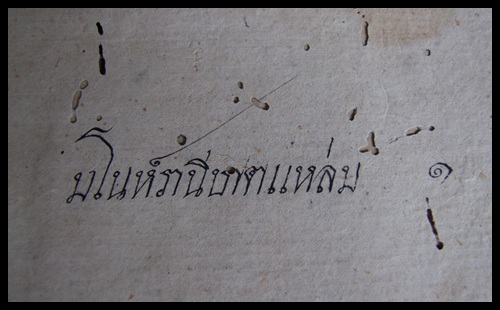 มโนห์รานีบาตแหล่ม ๑